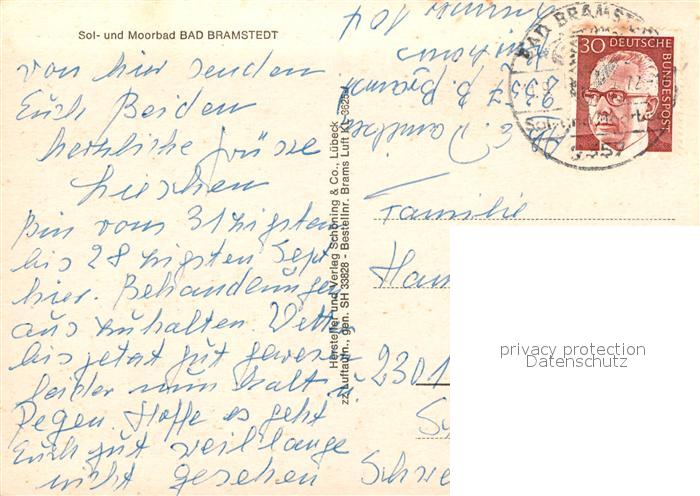 Sol- und Moorbad BAD BRAMSTEDT
von hier senden
Euch Beiden
herzliche Grüsse
Lieschen
Bin vom 31zigsten
bis 28zigsten Sept
hier. Behandlungen
aus zuhalten. Wetter
bis jetzt gut gewesen
leider nun kalt u.
Regen. Hoffe es geht
Euch gut weil lange
nicht gesehen
Hersteller und Verlag Schöning & Co., Lübeck
zz Luftaufn., gen. SH 33828 - Bestellnr. Brams Luft KL
2357 B. Bramst
BAD BRAMSTEDT
2357
30 DEUTSCHE
BUNDESPOST
Familie
Ham
2301
Schwe
privacy protection
Datenschutz